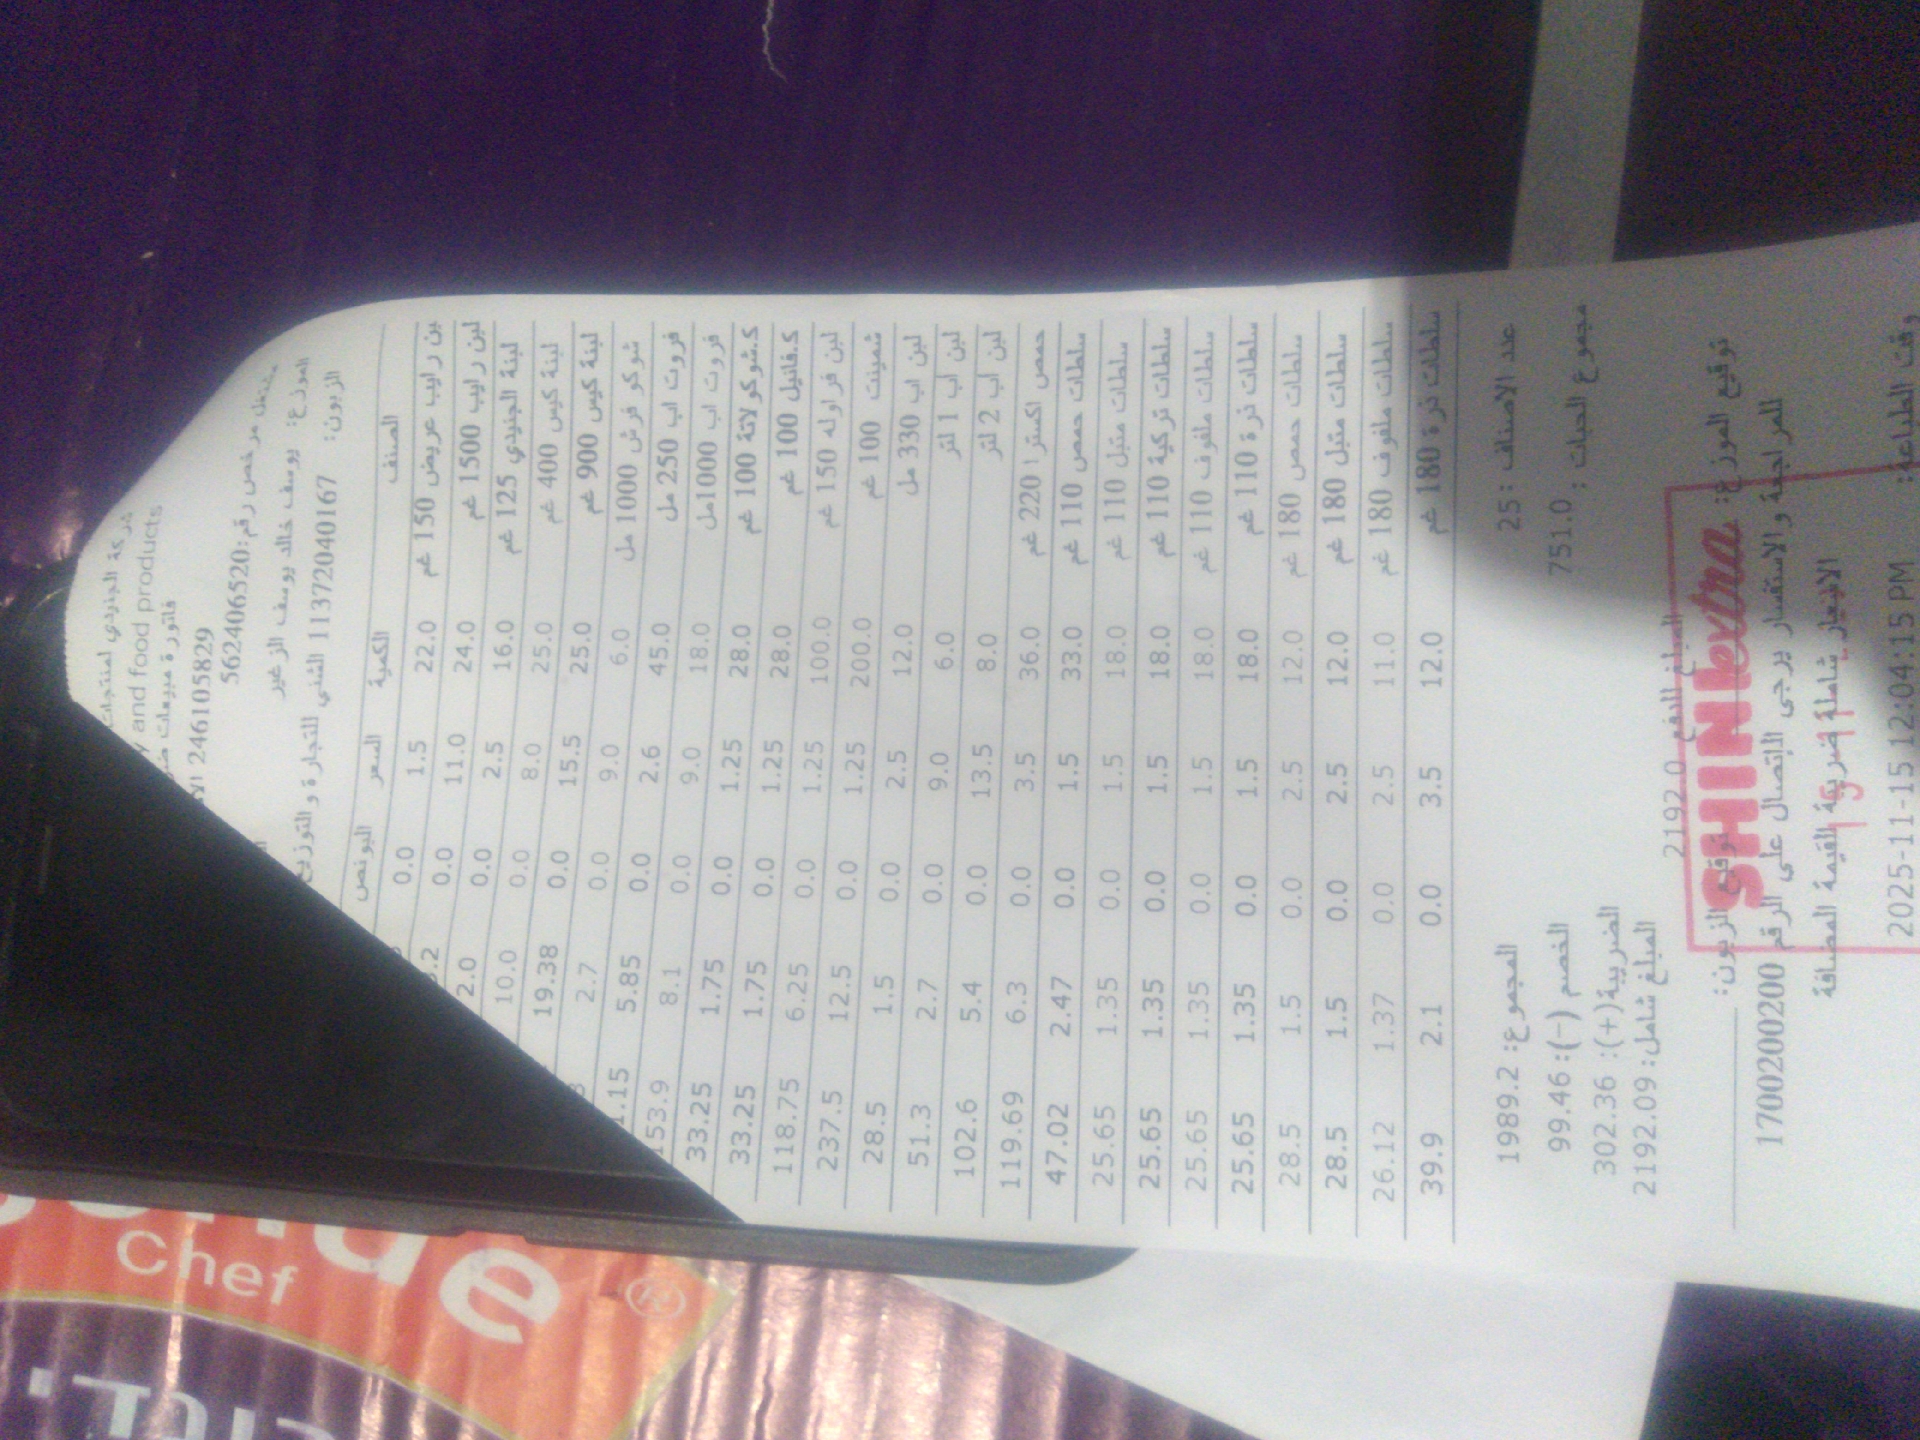 شركة الجنيدي لمنتجات
and food products
فاتورة مبيعات
246105829
مشتغل مرخص رقم: 562406520
الموزع: يوسف خالد يوسف الزغير
الزبون: 11372040167 الشني للتجارة والتوزيع
الصنف الكمية السعر البونص
رايب عريض 150 غم 22.0 1.5 0.0
لبن رايب 1500 غم 24.0 11.0 0.0
لبنة الجنيدي 125 غم 16.0 2.5 0.0 2.0
لبنة كيس 400 غم 25.0 8.0 0.0 10.0
لبنة كيس 900 غم 25.0 15.5 0.0 19.38
شوكو فرش 1000 مل 6.0 9.0 0.0 2.7
فروت اب 250 مل 45.0 2.6 0.0 5.85
فروت اب 1000مل 18.0 9.0 0.0 8.1 153.9
ك.شوكولاتة 100 غم 28.0 1.25 0.0 1.75 33.25
ك.فانيل 100 غم 28.0 1.25 0.0 1.75 33.25
لبن فراوله 150 غم 100.0 1.25 0.0 6.25 118.75
شمينت 100 غم 200.0 1.25 0.0 12.5 237.5
لبن اب 330 مل 12.0 2.5 0.0 1.5 28.5
لبن اب 1 لتر 6.0 9.0 0.0 2.7 51.3
لبن اب 2 لتر 8.0 13.5 0.0 5.4 102.6
حمص اكسترا 220 غم 36.0 3.5 0.0 6.3 119.69
سلطات حمص 110 غم 33.0 1.5 0.0 2.47 47.02
سلطات متبل 110 غم 18.0 1.5 0.0 1.35 25.65
سلطات تركية 110 غم 18.0 1.5 0.0 1.35 25.65
سلطات ملفوف 110 غم 18.0 1.5 0.0 1.35 25.65
سلطات ذرة 110 غم 18.0 1.5 0.0 1.35 25.65
سلطات حمص 180 غم 12.0 2.5 0.0 1.5 28.5
سلطات متبل 180 غم 12.0 2.5 0.0 1.5 28.5
سلطات ملفوف 180 غم 11.0 2.5 0.0 1.37 26.12
سلطات ذرة 180 غم 12.0 3.5 0.0 2.1 39.9
عدد الاصناف : 25 المجموع: 1989.2
مجموع الحبات : 751.0 الخصم (-): 99.46
الضريبة(+): 302.36
المبلغ شامل: 2192.09
المبلغ للدفع 2192.0
توقيع الموزع: توقيع الزبون:
SHINI extra
للمراجعة والاستفسار يرجى الاتصال على الرقم 1700200200
الاسعار شاملة ضريبة القيمة المضافة
وقت الطباعة: 2025-11-15 12:04:15 PM
Chef